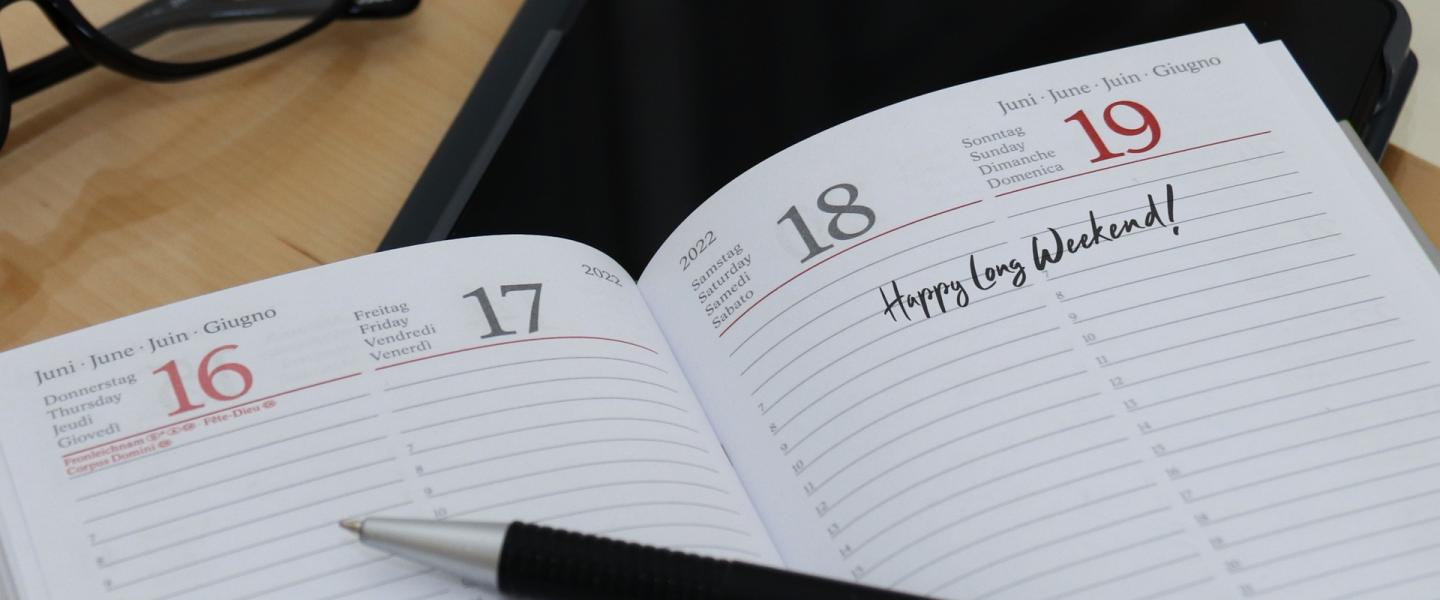 Juni · June · Juin · Giugno
Donnerstag
Thursday
Jeudi
Giovedì
16
Fronleichnam Fête-Dieu
Corpus Domini
7
8
9
Freitag
Friday
Vendredi
Venerdì
17
2022
7
8
9
10
2022
Samstag
Saturday
Samedi
Sabato
18
7
8
9
10
11
12
13
14
15
Juni · June · Juin · Giugno
Sonntag
Sunday
Dimanche
Domenica
19
Happy Long Weekend!
7
8
9
10
11
12
13
14
15
16
17
18
19
20
21